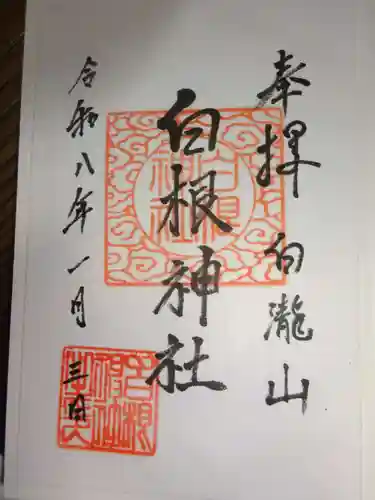 奉拝 白瀧山
白根神社
令和八年一月
三日
白根神社